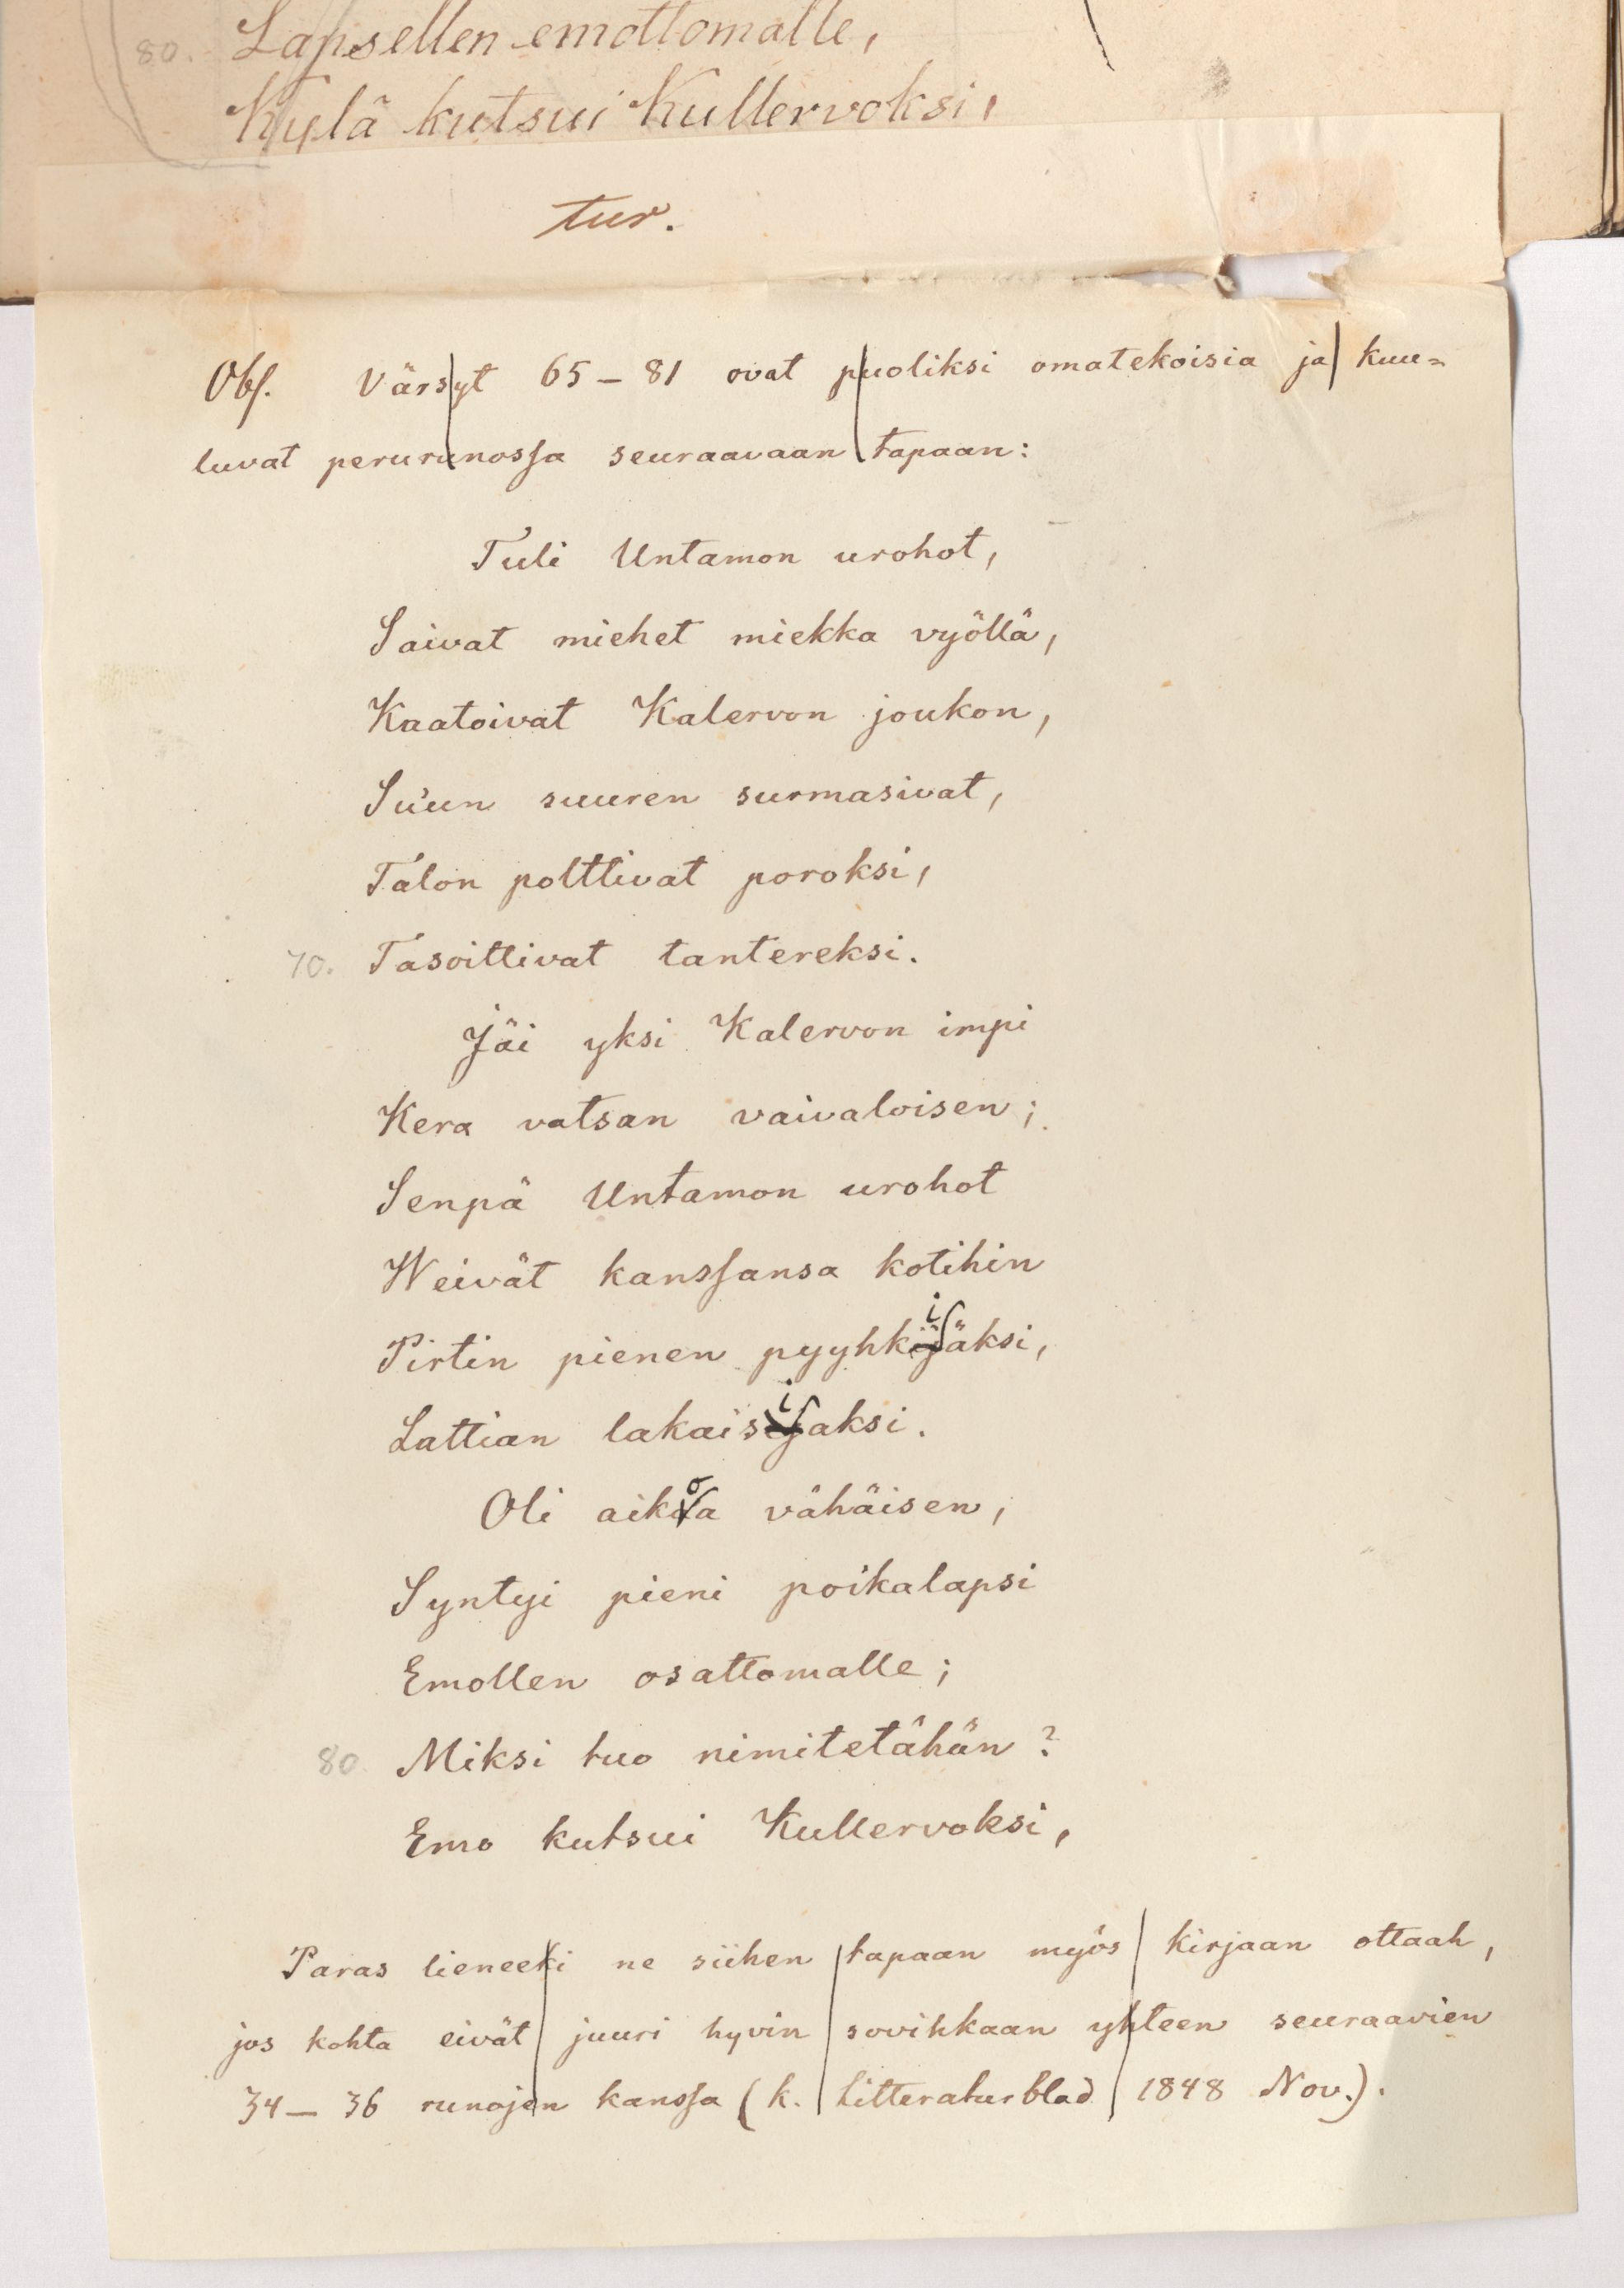 80. Lapsellen emottomalle,
Kylä kutsui Kullervoksi,
tur.
Obs. Värsyt 65–81 ovat puoliksi omatekoisia ja kuu=
luvat perurunossa seuraavaan tapaan:
Tuli Untamon urohot,
Saivat miehet miekka vyöllä,
Kaatoivat Kalervon joukon,
Su'un suuren surmasivat,
Talon polttivat poroksi,
70. Tasoittivat tantereksi.
Jäi yksi Kalervon impi
Kera vatsan vaivaloisen;
Senpä Untamon urohot
Weivät kanssansa kotihin
Pirtin pienen pyyhkiäksi,
Lattian lakaisiaksi.
Oli aikoa vähäisen,
Syntyi pieni poikalapsi
Emollen osattomalle;
80. Miksi tuo nimitetähän?
Emo kutsui Kullervoksi,
Paras lieneeki ne siihen tapaan myös kirjaan ottaah,
jos kohta eivät juuri hyvin sovikkaan yhteen seuraavien
34–36 runojen kanssa (k. Litteraturblad 1848 Nov.).